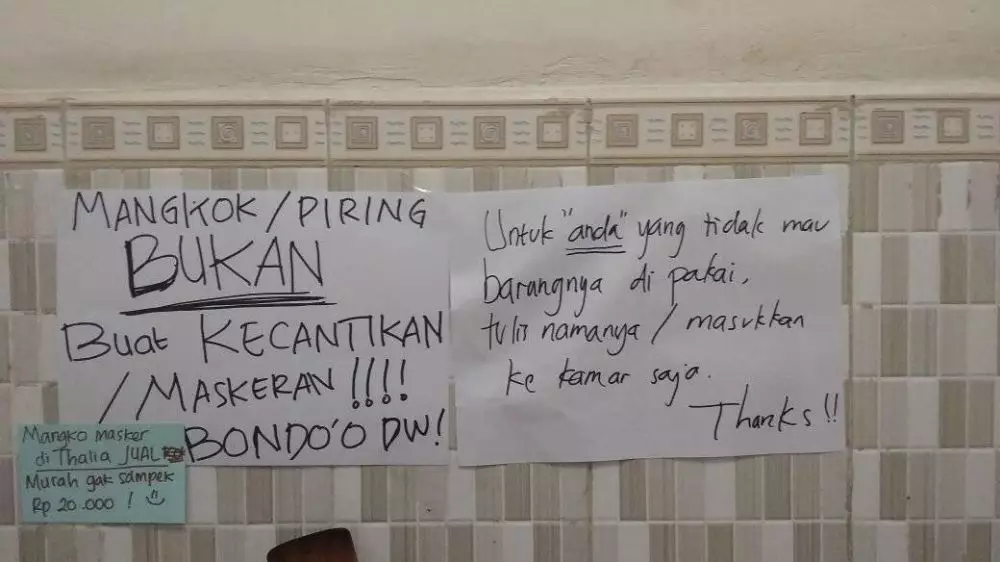 MANGKOK / PIRING
BUKAN
Buat KECANTIKAN
/ MASKERAN !!!!
BONDO'O DW!
Mangko masker
di Thalia JUAL
Murah gak sampek
Rp 20.000 !
Untuk "anda" yang tidak mau
barangnya di pakai,
tulis namanya / masukkan
ke kamar saja.
Thanks !!